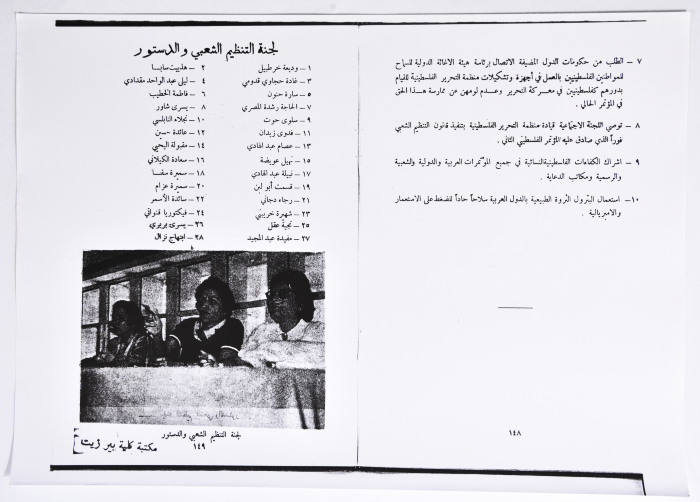 ٧ – الطلب من حكومات الدول المضيفة الاتصال برئاسة هيئة الاغاثة الدولية للسماح
للمواطنين الفلسطينيين بالعمل في أجهزة وتشكيلات منظمة التحرير الفلسطينية للقيام
بدورهم كفلسطينيين في معركة التحرير وعدم لومهن عن ممارسة هذا الحق
في المؤتمر الحالي .
٨ – توصي اللجنة الاجتماعية قيادة منظمة التحرير الفلسطينية بتنفيذ قانون التنظيم الشعبي
فوراً الذي صادق عليه المؤتمر الفلسطيني الثاني .
٩ – اشراك الكفاءات الفلسطينية النسائية في جميع المؤتمرات العربية والدولية والشعبية
والرسمية ومكاتب الدعاية .
١٠ – استعمال البترول الثروة الطبيعية بالدول العربية سلاحاً حاداً للضغط على الاستعمار
والامبريالية .
١٤٨
لجنة التنظيم الشعبي والدستور
١ – وديعة خرطبيل
٢ – هنرييت سابا
٣ – غادة حجاوي قدومي
٤ – ليلى عبد الواحد مقدادي
٥ – سارة حنون
٦ – فاطمة الخطيب
٧ – الحاجة رشدة المصري
٨ – يسرى شاور
٩ – سلوى حوت
١٠ – نجلاء النابلسي
١١ – فدوى زيدان
١٢ – عائدة حسين
١٣ – عصام عبد الهادي
١٤ – مقبولة اليحيى
١٥ – نهيل عويضة
١٦ – سعادة الكيلاني
١٧ – نبيلة عبد الهادي
١٨ – سميرة سفا
١٩ – قسمت أبو لبن
٢٠ – سميرة عزام
٢١ – رجاء دجاني
٢٢ – سائدة الأسمر
٢٣ – شهيرة خريبي
٢٤ – فيكتوريا قنواتي
٢٥ – نجية عقل
٢٦ – يسرى بربري
٢٧ – مفيدة عبد المجيد
٢٨ – ابتهاج نزال
لجنة التنظيم الشعبي والدستور
١٤٩
مكتبة كلية بير زيت